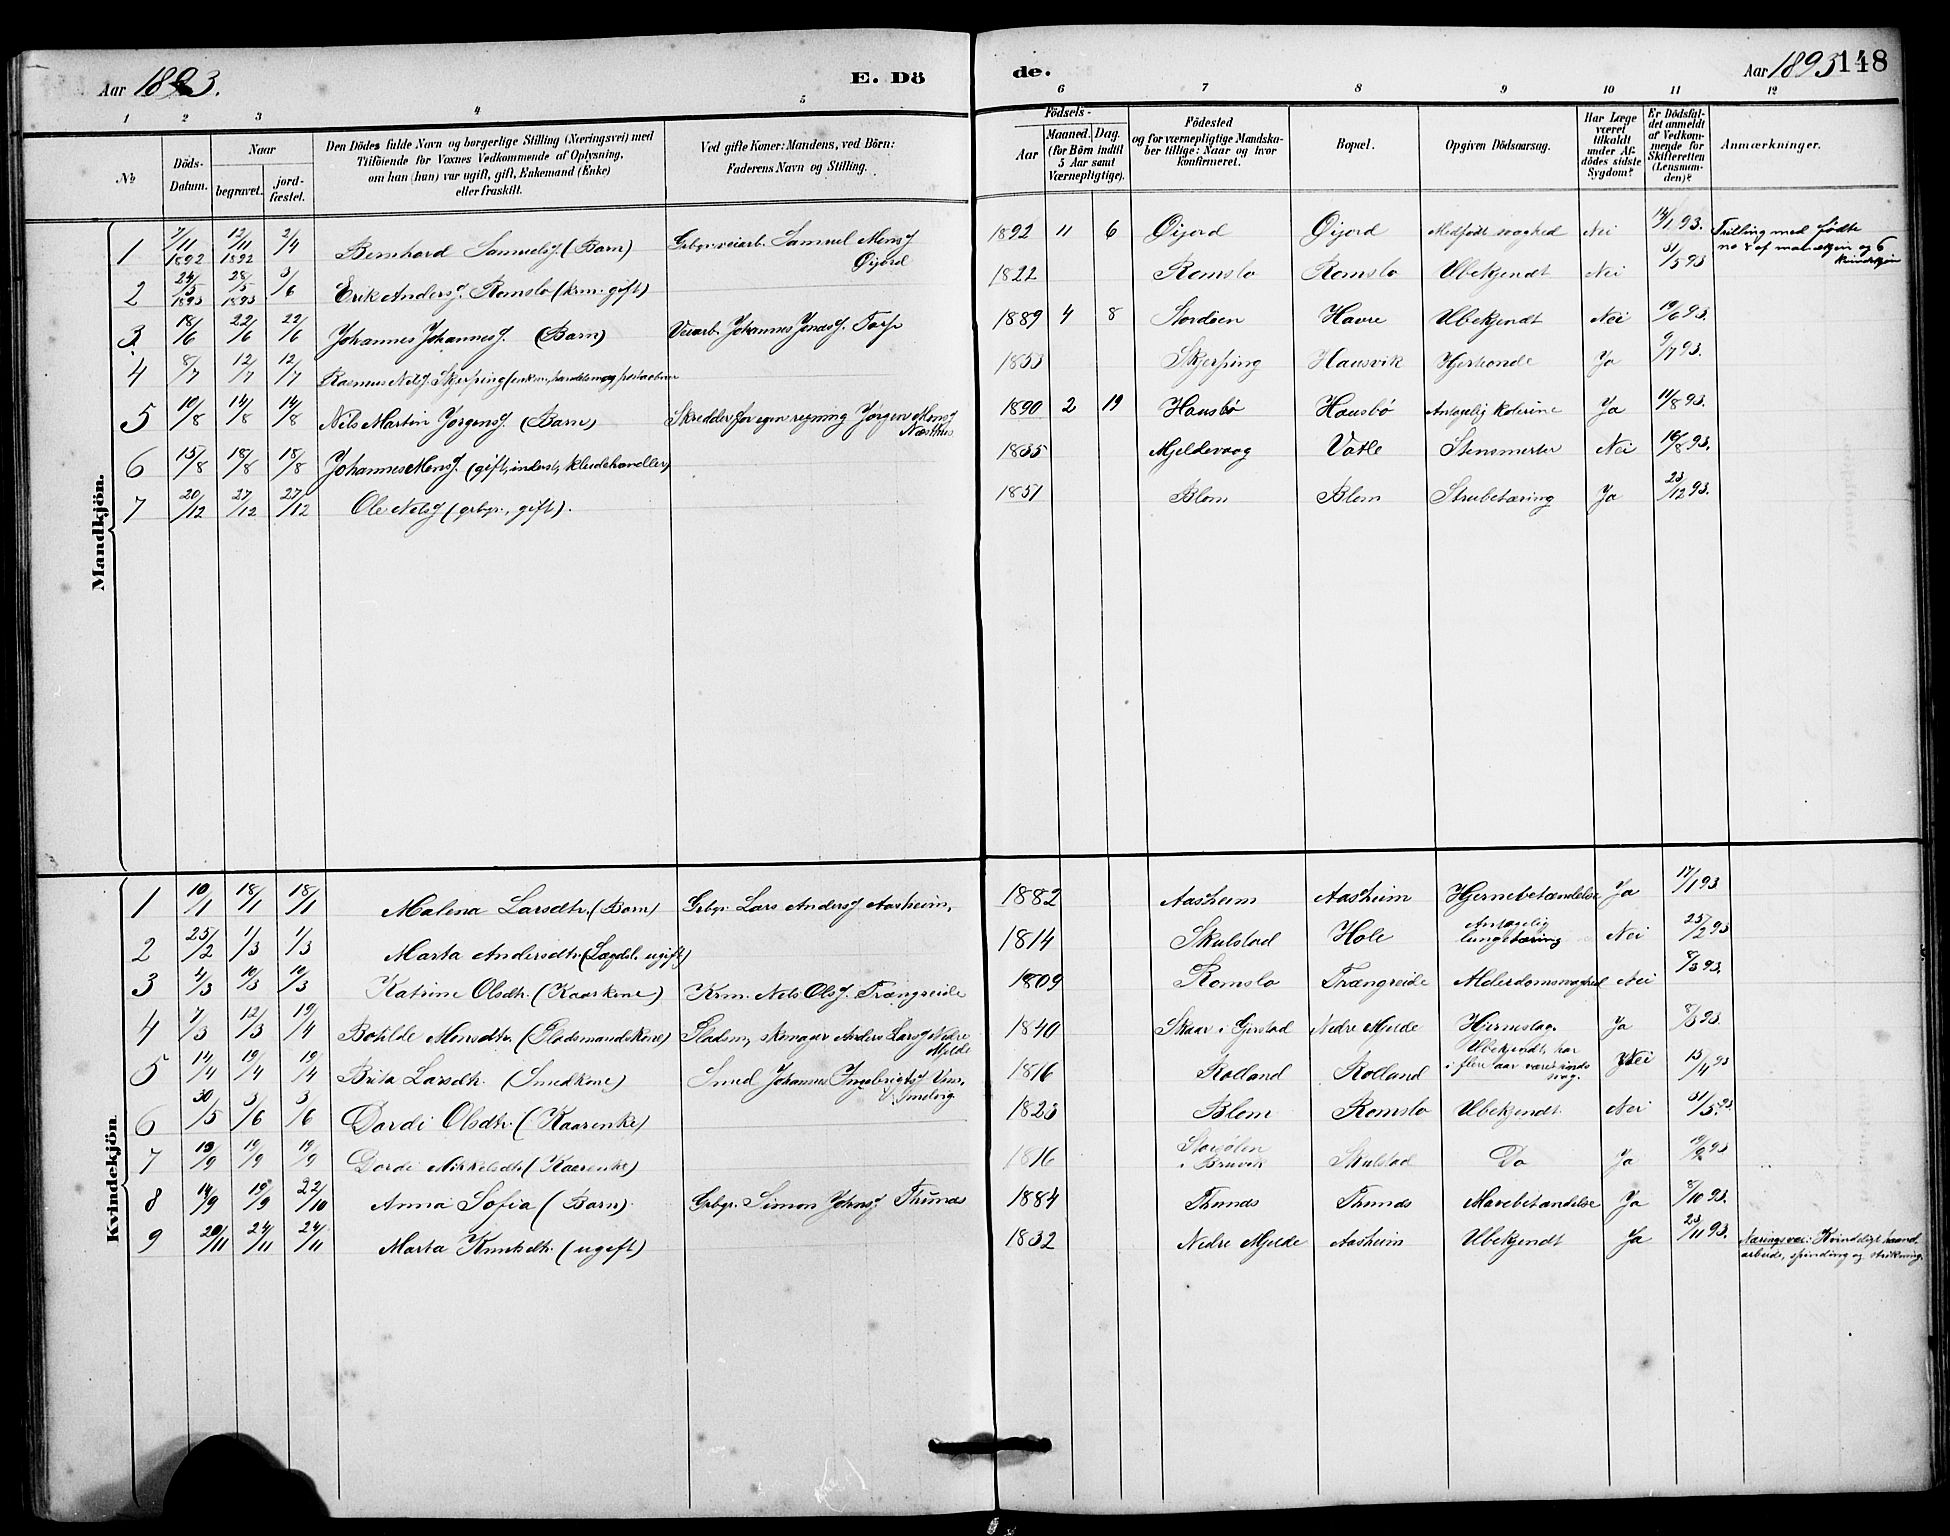 Aar 1893.
E. Dö
de.
Aar 1893
148
1 2 3 4 5 6 7 8 9 10 11 12
№
Döds-Datum.
Naar
begravet.
jordfæstet.
Den Dödes fulde Navn og borgerlige Stilling (Næringsvei) med
Tilföiende for Voxnes Vedkommende af Oplysning,
om han (hun) var ugift, gift, Enkemand (Enke)
eller fraskilt.
Ved gifte Koner: Mandens, ved Börn:
Faderens Navn og Stilling.
Födsels-
Aar
Maaned. Dag.
(for Börn indtil
5 Aar samt
Værnepligtige).
Födested
og for værnepligtige Mandskaber tillige: Naar og hvor
konfirmeret.
Bopæl.
Opgiven Dödsaarsag.
Har Læge
været
tilkaldt
under Afdödes sidste
Sygdom?
Er Dödsfaldet anmeldt
af Vedkommende for
Skifteretten
(Lensmanden)?
Anmærkninger.
Mandkjön.
1 7/11 1892 12/11 1892 2/4 Bernhard Samuelsj. (Barn) Grbgr. veiarb. Samuel Monsj Øijord 1892 11 6 Øijord Øijord Medfødt svaghed Nei 14/1 93. Trilling med fødte no 8 af mandkjøn og 6 kvindekjøn
2 24/5 1893 28/5 1893 3/6 Erik Andersj. Romslo (krm. gift) 1822 Romslo Romslo Ubekjendt Nei 31/5 93
3 18/6 22/6 22/6 Johannes Johannesj. (Barn) Veiarb. Johannes Jonasj. Torp 1889 4 8 Stordøen Havre Ubekjendt Nei 19/6 93.
4 8/7 12/7 12/7 Rasmus Nelsj. Skjerping (enkm, handelsm og postaabner 1833 Skjerping Hausvik Hjertonde Ja 9/7 93.
5 10/8 14/8 14/8 Nils Martin Jørgensj. (Barn) Skredder for egen regning Jørgen Monsj Næsthus 1890 2 19 Hausbø Hausbø Antagelig kolerine Ja 14/8 93.
6 15/8 18/8 18/8 Johannes Monsj. (gift, inderst, kleidehandler) 1835 Mjeldevaag Vatle Stensmerter Nei 16/8 93.
7 20/12 27/12 27/12 Ole Nelsj (grbgr., gift). 1851 Blom Blom Strubetæring Ja 23/12 93.
Kvindekjön
1 10/1 18/1 18/1 Malena Larsdtr. (Barn) Grbgr. Lars Andersj Aasheim, 1882 Aasheim Aasheim Hjernebetændelse Ja 17/1 93
2 25/2 1/3 1/3 Marta Andersdtr. (Lægdsl. ugift) 1814 Skulstad Hole Antagelig lungetæring Nei 25/2 93
3 4/3 10/3 10/3 Katrine Olsdtr. (Kaarkone) Krm. Nels Olsj. Trængreide 1809 Romslo Trængreide Alderdomssvaghed Nei 8/3 93.
4 7/3 12/3 19/4 Botilde Monsdtr. (Pladsmandskone) Pladsm, skomager Anders Larsj Nedre Mjelde 1840 Skaar i Gjerstad Nedre Mjelde Hjerneslag. Ja 8/3 93.
5 14/4 19/4 19/4 Brita Larsdtr. (Smedkone) Smed Johannes Ingebrigtsj 1816 Rolland Rolland Ubekjendt, har i flere aar været sinds svag. Nei 15/4 93
6 30/5 3/6 3/6 Dordi Olsdtr. (Kaarenke) 1823 Blom Romslo Ubekjendt. Nei 31/5 93.
7 13/9 19/9 19/9 Dordi Mikkelsdtr. (Kaarenke) 1816 i Bruvik Skulstad Do Ja 93
8 14/9 19/9 22/10 Anna Sofia (Barn). Grbgr. Simon Johnsj Thunæs 1884 Thunæs Thunæs Mavebetændelse Ja 8/10 93.
9 20/11 24/11 24/11 Marta Knutsdtr. (ugift) 1832 Nedre Mjelde Aasheim Ubekjendt Ja 23/11 93. Næringsvei: Kvindeligt haand arbeide, spinding og strikning.